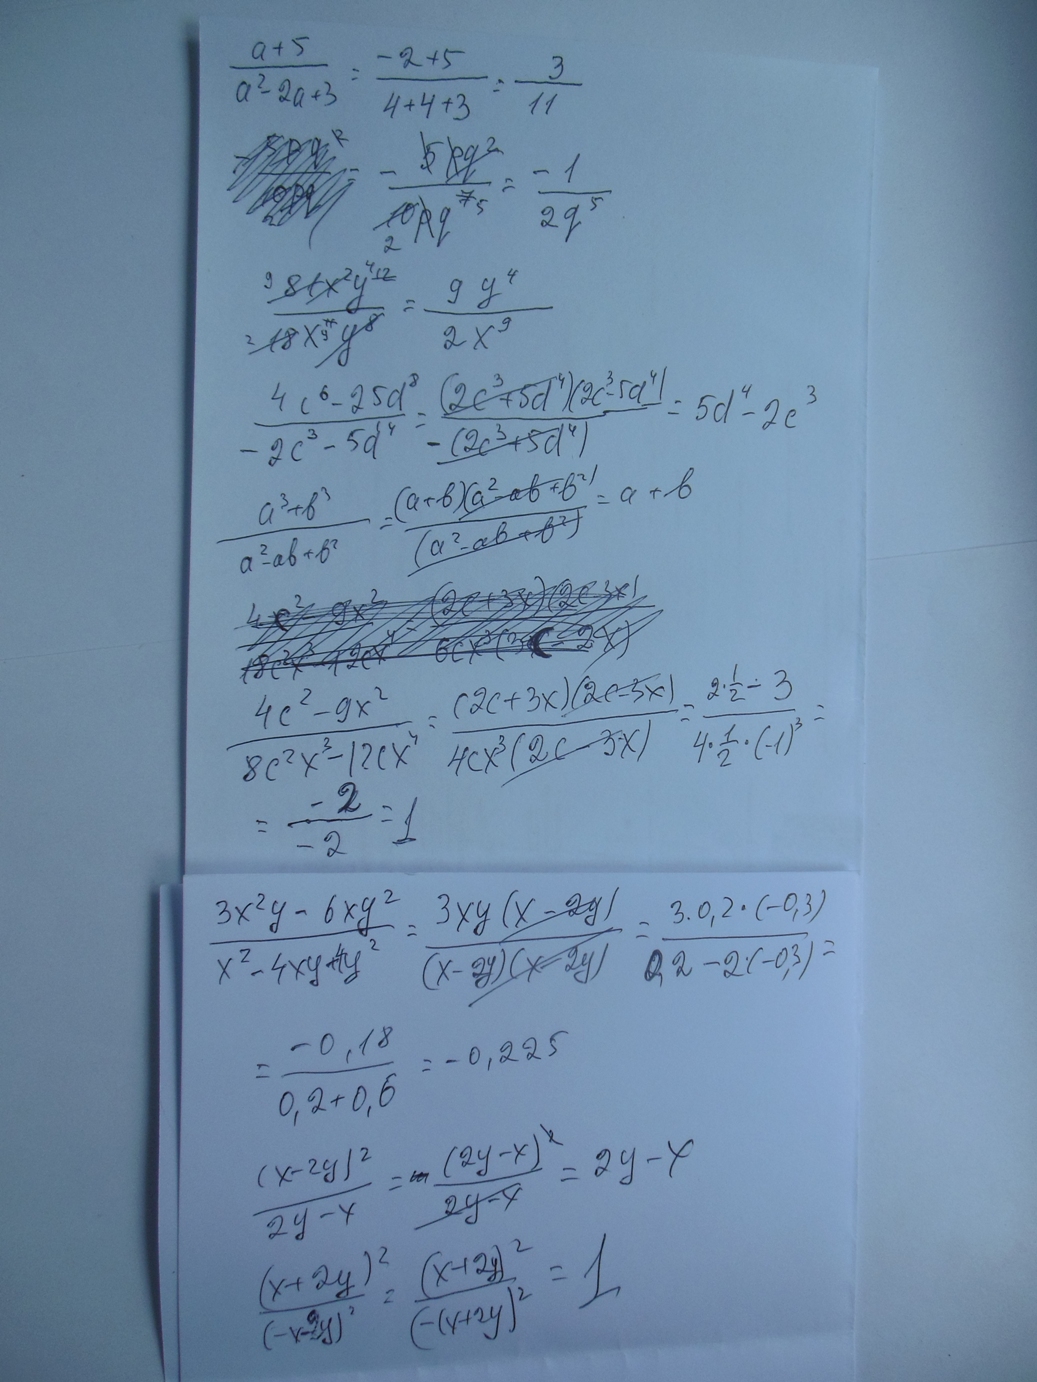 (a+5)/(a²-2a+3) = (-2+5)/(4+4+3) = 3/11
= - 5pq²/10pq⁷ 2 5 = -1/2q⁵
9 81x²y⁴ 12/2 18x 9 y⁸ = 9y⁴/2x⁹
(4c⁶-25d⁸)/(-2c³-5d⁴) = (2c³+5d⁴)(2c³-5d⁴)/-(2c³+5d⁴) = 5d⁴-2c³
(a³+b³)/(a²-ab+b²) = (a+b)(a²-ab+b²)/(a²-ab+b²) = a+b
(4c²-9x²)/(8c²x³-12cx⁴) = (2c+3x)(2c-3x)/4cx³(2c-3x) = (2·1/2-3)/(4·1/2·(-1)³) =
= -2/-2 = 1
(3x²y-6xy²)/(x²-4xy+4y²) = 3xy(x-2y)/(x-2y)(x-2y) = 3·0,2·(-0,3)/(0,2-2·(-0,3)) =
= -0,18/(0,2+0,6) = -0,225
(x-2y)²/(2y-x) = (2y-x)²/(2y-x) = 2y-x
(x+2y)²/(-x-2y)² = (x+2y)²/(-(x+2y)² = 1